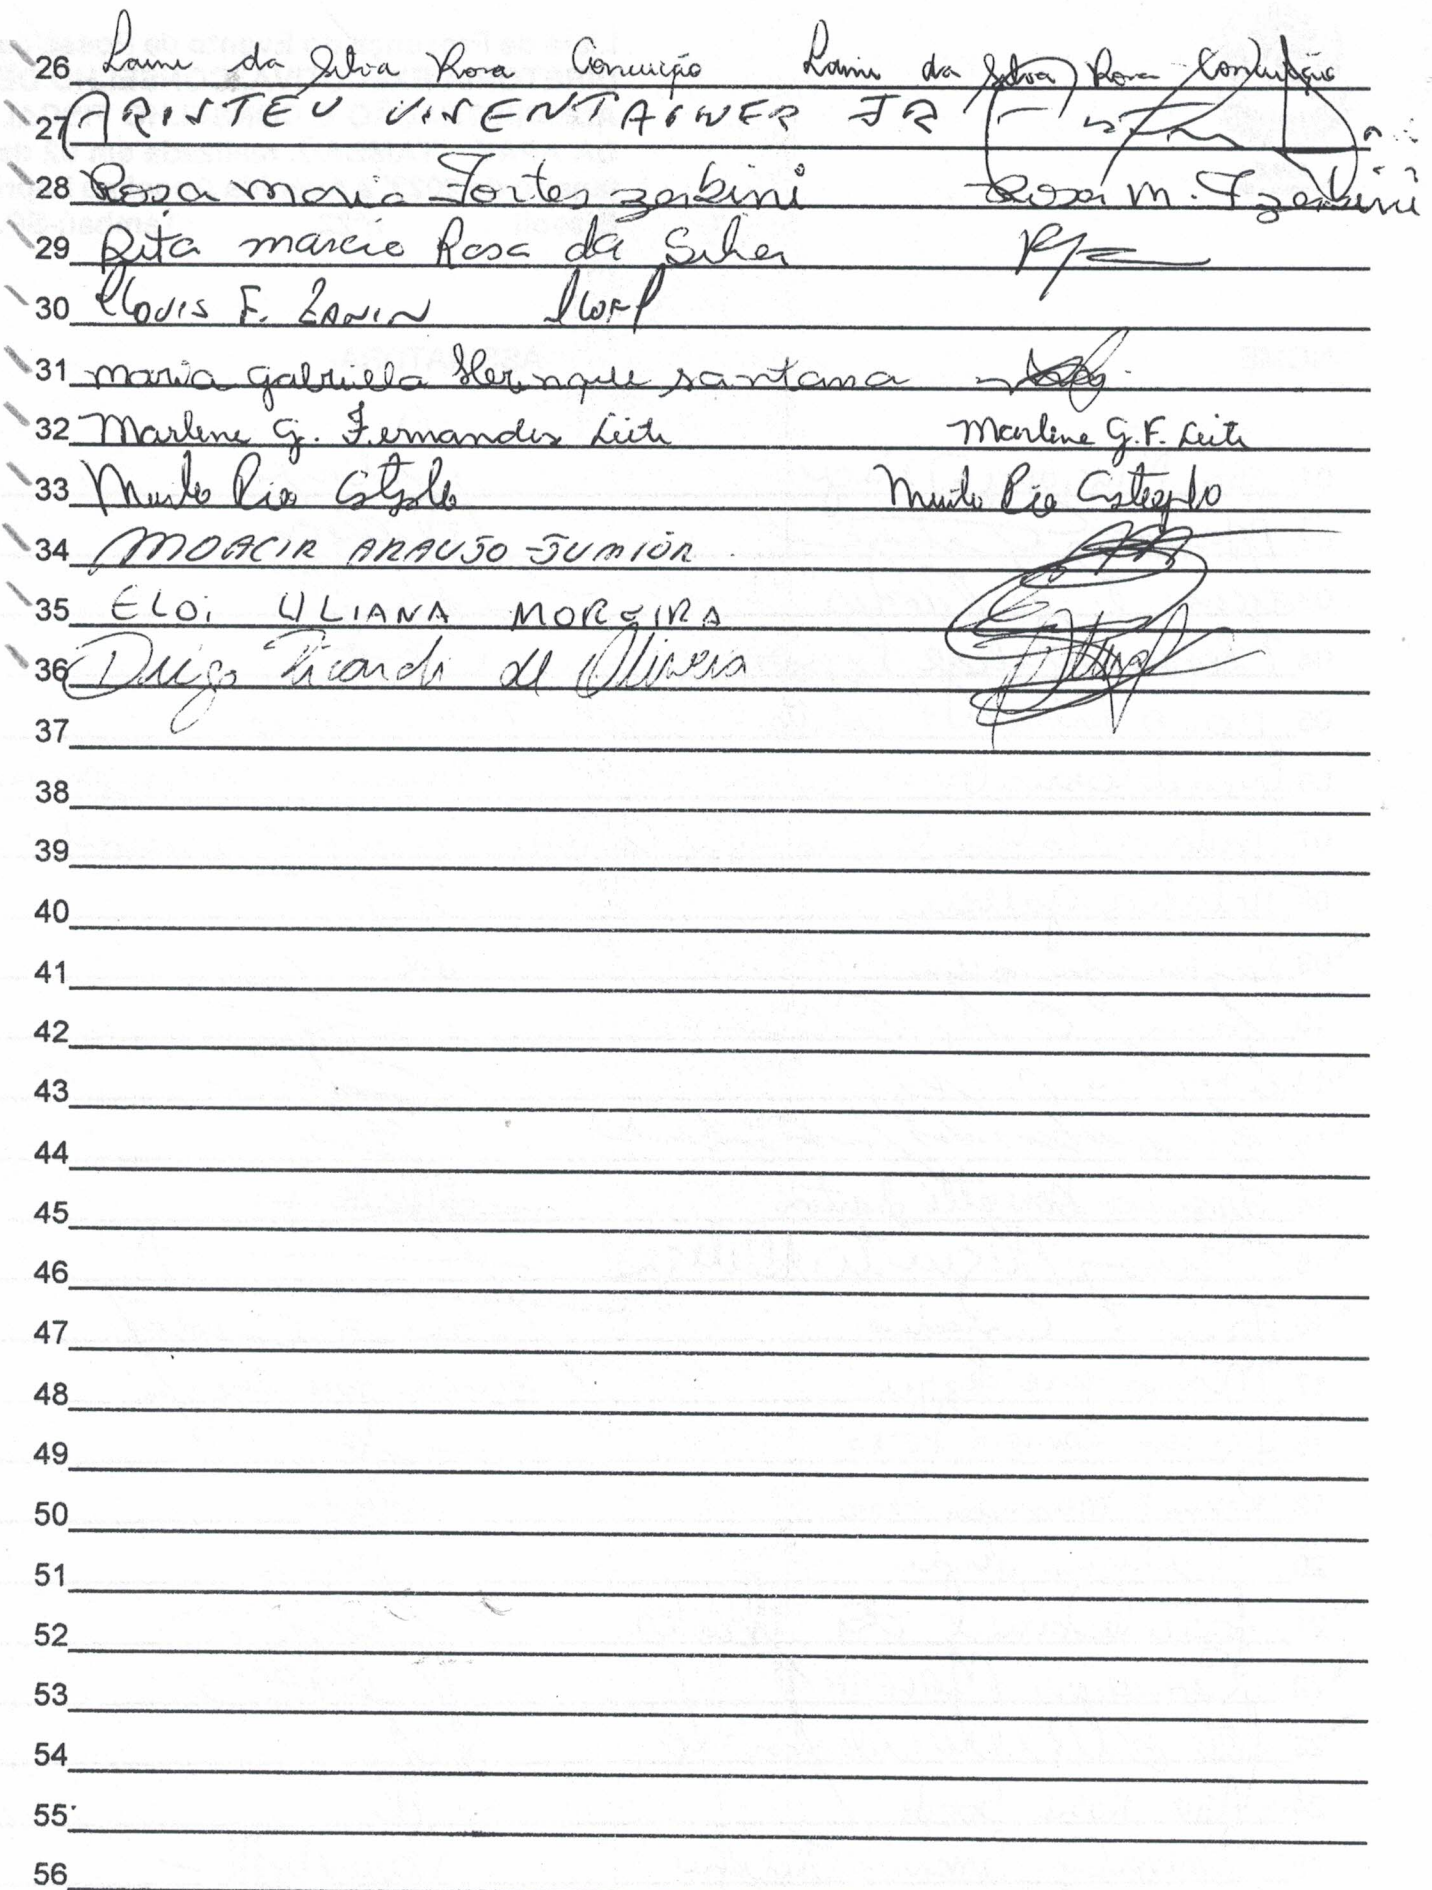 26 da Silva Rosa Conceição da Silva Rosa Conceição
27 ARISTEU VICENTAINER JR
28 Rosa Maria Fortes Zerbini Rosa M. F Zerbini
29 Rita marcia Rosa da Silva
30 Clovis F. ZANIN
31 maria gabriela santana
32 Marlene G. Fernandes Leite Marlene G. F. Leite
33 Murilo Pio Murilo Pio
34 MOACIR ARAUJO JUNIOR
35 ELOI LILIANA MOREIRA
36 Diego Ricardo de Oliveira
37
38
39
40
41
42
43
44
45
46
47
48
49
50
51
52
53
54
55
56